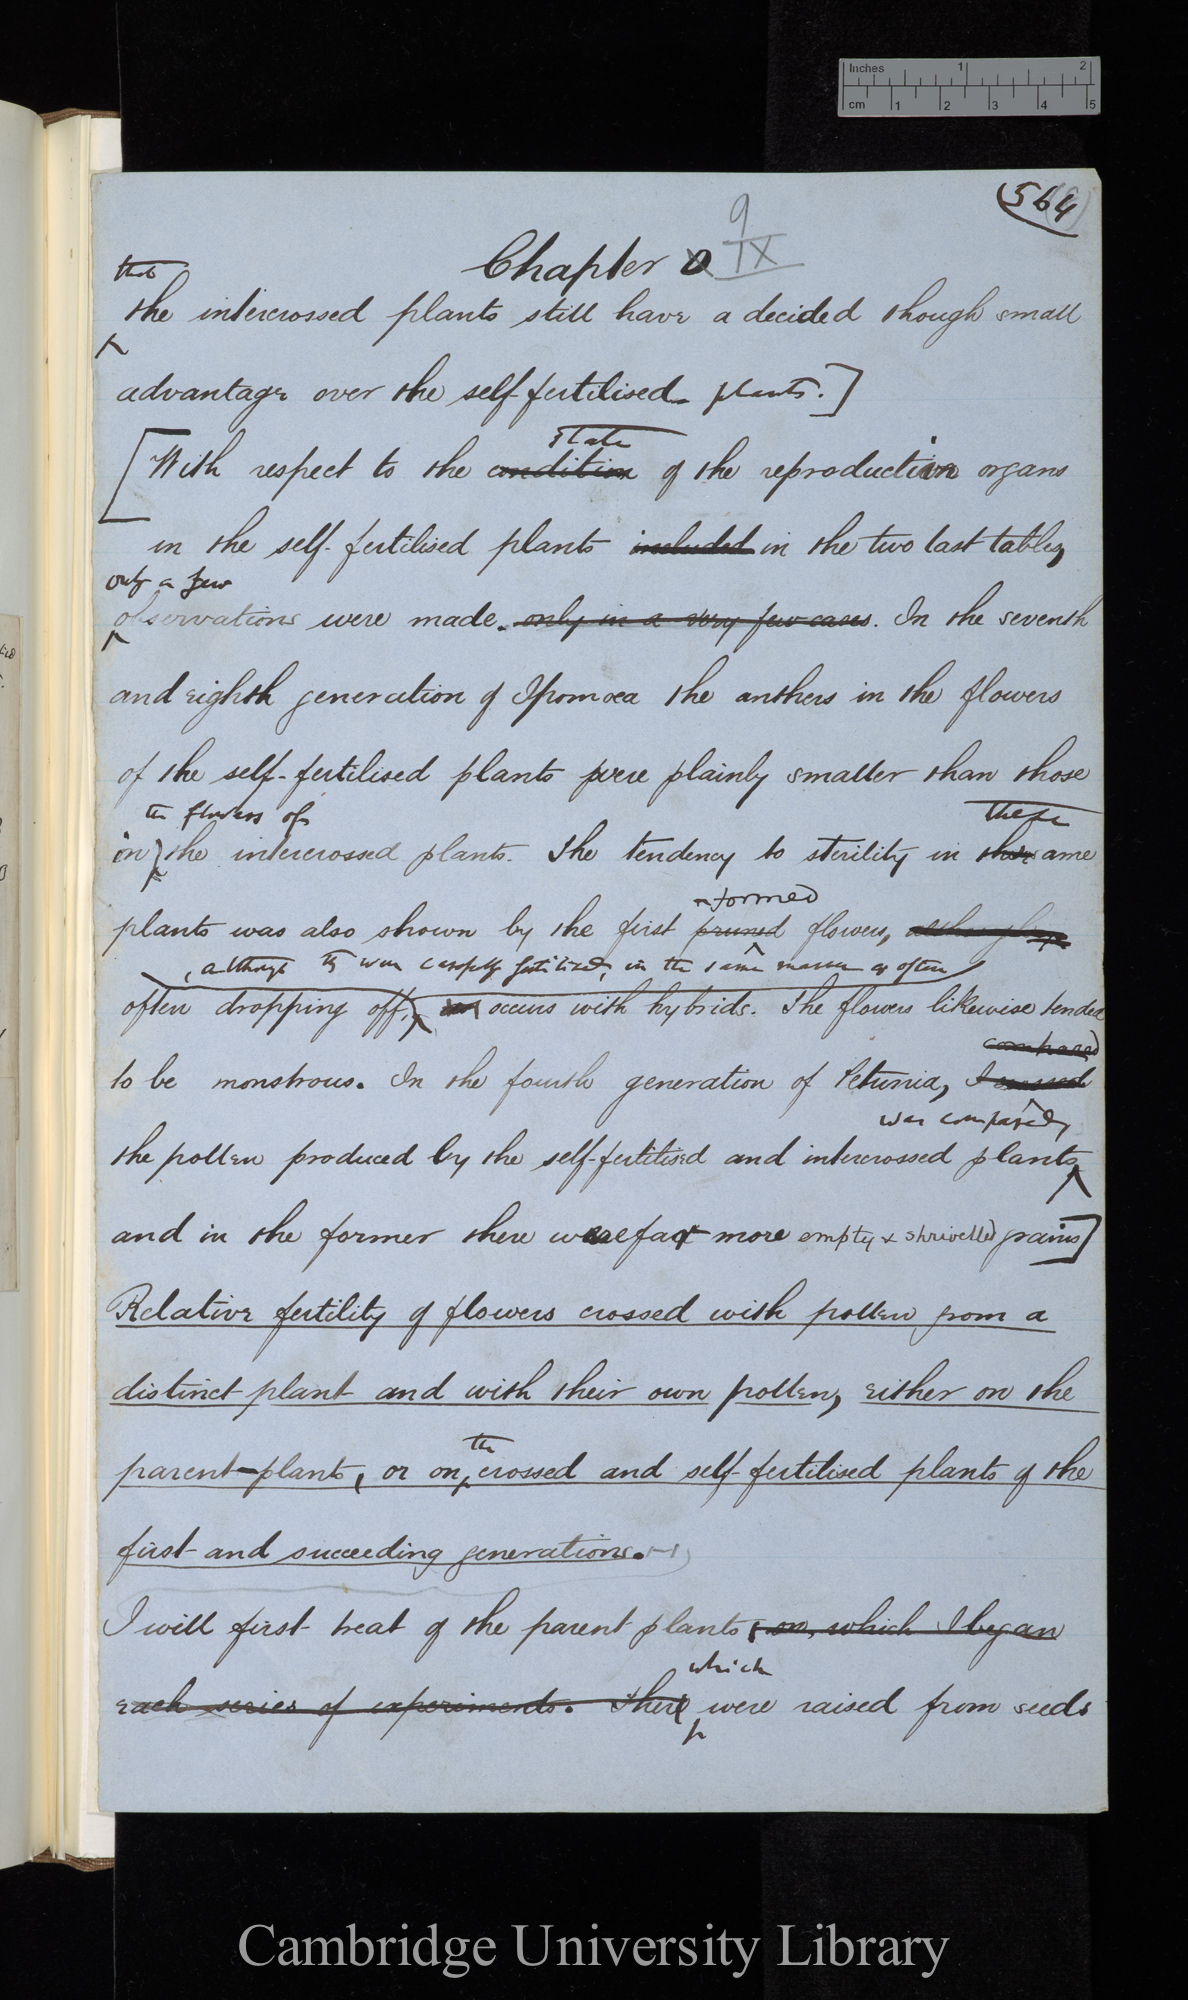 Inches 1 2
cm 1 2 3 4 5
(564
9
Chapter IX
that
the intercrossed plants still have a decided though small
advantage over the self-fertilised plants.]
state
[With respect to the condition of the reproductive organs
in the self-fertilised plants included in the two last tables,
only a few
observations were made. only in a very few cases. In the seventh
and eighth generation of Ipomœa the anthers in the flowers
of the self-fertilised plants were plainly smaller than those
the flowers of
in the intercrossed plants. The tendency to sterility in
these
same
formed
plants was also shown by the first flowers, although
, although they were carefully fertilised, in the same manner as often
often dropping off, as occurs with hybrids. The flowers likewise tended
compared
to be monstrous. In the fourth generation of Petunia, I
was compared,
the pollen produced by the self-fertilised and intercrossed plants
and in the former there were far more empty & shrivelled grains]
Relative fertility of flowers crossed with pollen from a
distinct plant and with their own pollen, either on the
the
parent-plants, or on crossed and self-fertilised plants of the
first and succeeding generations.
I will first treat of the parent plants, on which I began
which
each series of experiments. These were raised from seeds
Cambridge University Library